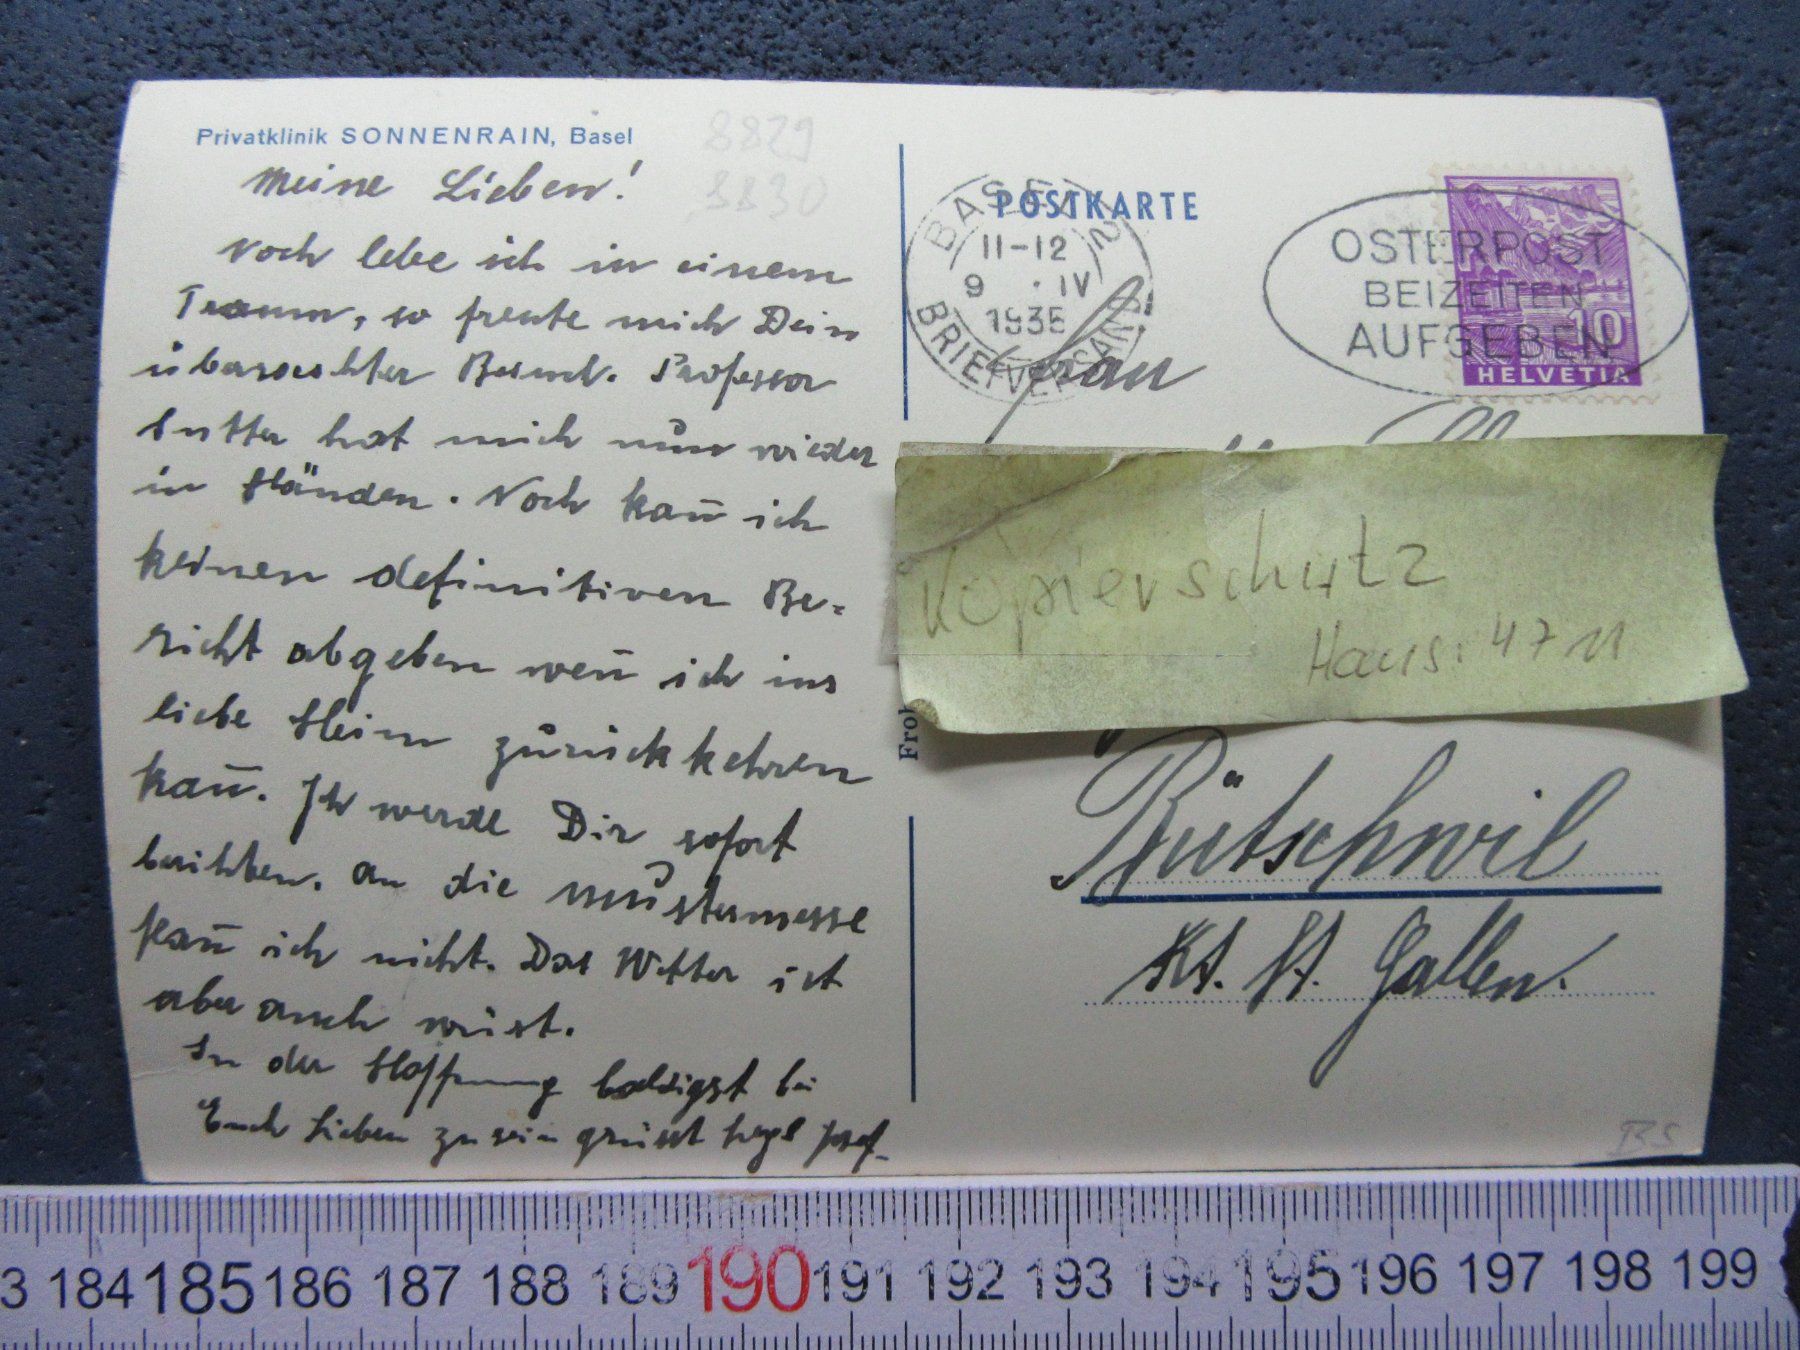 Privatklinik SONNENRAIN, Basel
8829
8830
Meine Lieben!
Noch lebe ich in einem
Traum, so freute mich Dein
überraschter Besuch. Professor
Sutter hat mich nun wieder
in Händen. Noch kan̄ ich
keinen definitiven Be-
richt abgeben wen̄ ich ins
liebe Heim zurückkehren
kan̄. Ich werde Dir sofort
berichten. An die Mustermesse
kan̄ ich nicht. Das Wetter ist
aber auch wüst.
In der Hoffnung baldigst bei
Euch Lieben zu sein grüsst Josef.
POSTKARTE
BASEL 2
11-12
9 · IV
1935
BRIEFVERSAND
OSTERPOST
BEIZEITEN
AUFGEBEN
10
HELVETIA
Frau
Kopierschutz
Hans. 4711
Froh
Bütschwil
Kt. St. Gallen.
BS
3 184 185 186 187 188 189 190 191 192 193 194 195 196 197 198 199